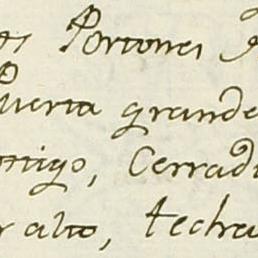 Portones
Puerta grande
ntigo, Cerrad
r alto, techa